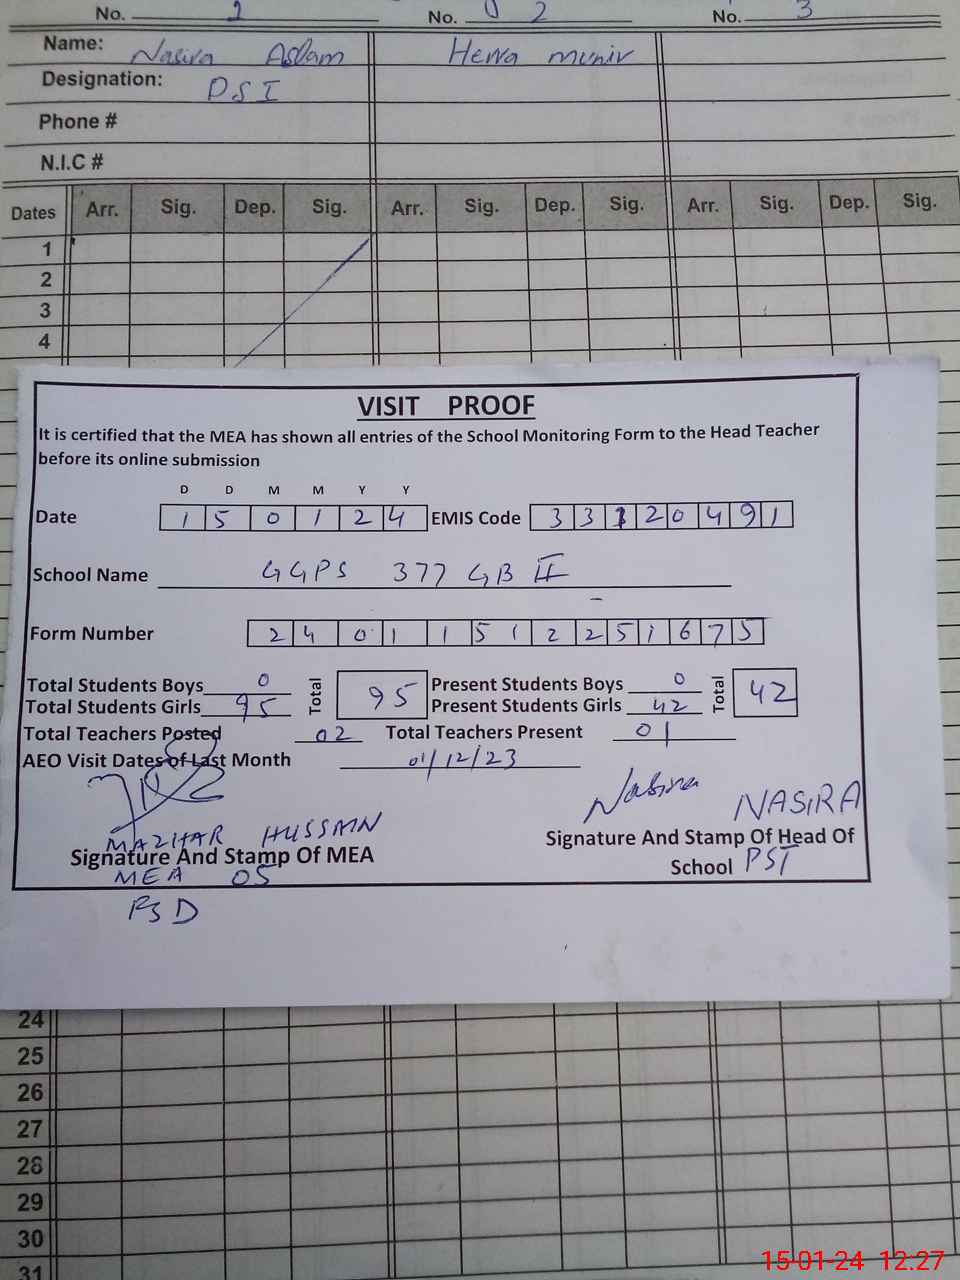 No. 1 No. 02 No. 3
Name: Nasira Aslam Herra munir
Designation: PST
Phone #
N.I.C #
Dates Arr. Sig. Dep. Sig. Arr. Sig. Dep. Sig. Arr. Sig. Dep. Sig.
1
2
3
4
VISIT PROOF
It is certified that the MEA has shown all entries of the School Monitoring Form to the Head Teacher
before its online submission
D D M M Y Y
Date 1 5 0 1 2 4 EMIS Code 3 3 1 2 0 4 9 1
School Name GGPS 377 GB II
Form Number 2 4 0 1 1 5 1 2 2 5 1 6 7 5
Total Students Boys 0 Total 95 Present Students Boys 0 Total 42
Total Students Girls 95 Present Students Girls 42
Total Teachers Posted 02 Total Teachers Present 01
AEO Visit Dates of Last Month 01/12/23
Nasira NASIRA
MAZHAR HUSSAIN
Signature And Stamp Of MEA Signature And Stamp Of Head Of
School PST
MEA 05
FSD
24
25
26
27
28
29
30
31
15-01-24 12:27